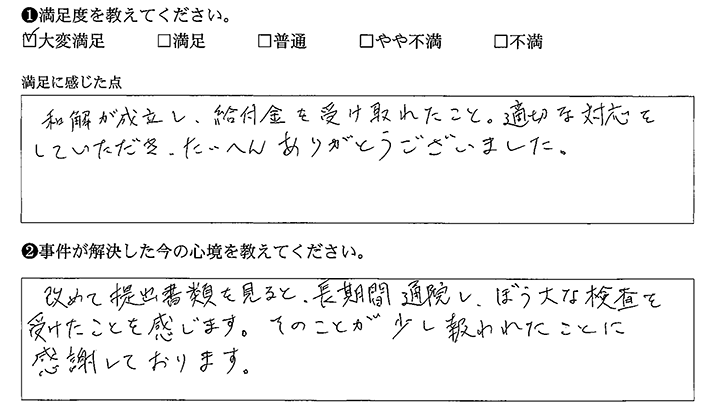 ❶満足度を教えてください。
☑大変満足 □満足 □普通 □やや不満 □不満
満足に感じた点
和解が成立し、給付金を受け取れたこと。適切な対応を
していただき、たいへんありがとうございました。
❷事件が解決した今の心境を教えてください。
改めて提出書類を見ると、長期間通院し、ぼう大な検査を
受けたことを感じます。そのことが少し報われたことに
感謝しております。